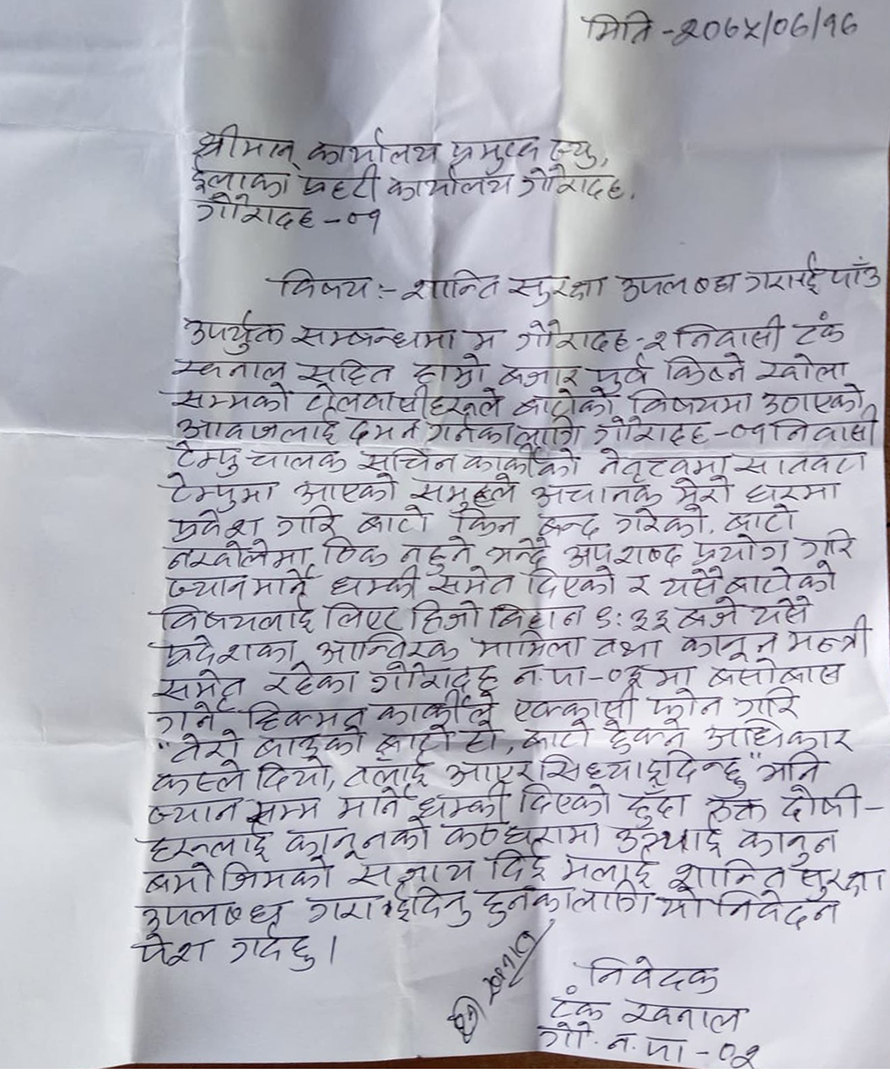 मिति -२०७५/०६/१६
श्रीमान् कार्यालय प्रमुख ज्यु,
ईलाका प्रहरी कार्यालय गौरादह,
गौरादह -०१
विषय :- शान्ति सुरक्षा उपलब्ध गराईपाँउ
उपर्युक्त सम्बन्धमा म गौरादह-२ निवासी टंक
खनाल सहित हाम्रो बजार पुर्व किष्ने खोला
सम्मको टोलवासीहरुले बाटोको विषयमा उठाएको
आवाजलाई दमन गर्नकालागि गौरादह-०१ निवासी
टेम्पु चालक सचिन कार्कीको नेतृत्वमा सातवटा
टेम्पुमा आएको समुहले अचानक मेरो घरमा
प्रवेश गरि बाटो किन बन्द गरेको, बाटो
नखोलेमा ठिक नहुने भन्दै अपशब्द प्रयोग गरि
ज्यान मार्ने धम्की समेत दिएको र यसै बाटोको
विषयलाई लिएर हिजो विहान ९:३३ बजे यसै
प्रदेशका आन्तिरक मामिला तथा कानून मन्त्री
समेत रहेका गौरादह न.पा-०३ मा बसोबास
गर्ने हिक्मत कार्कीले एक्कासी फोन गरि
"तेरो बाउको बाटो हो, बाटो छेक्ने अधिकार
कस्ले दियो, तँलाई आएर सिध्याइदिन्छु" भनि
ज्यान सम्म मार्ने धम्की दिएको हुँदा उक्त दोषी-
हरुलाई कानूनको कठघरामा उभ्याई कानुन
बमोजिमको सजाय दिई मलाई शान्ति सुरक्षा
उपलब्ध गराईदिनु हुनकालागि यो निवेदन
पेश गर्दछु।
निवेदक
टंक खनाल
गौ. न. पा -०२